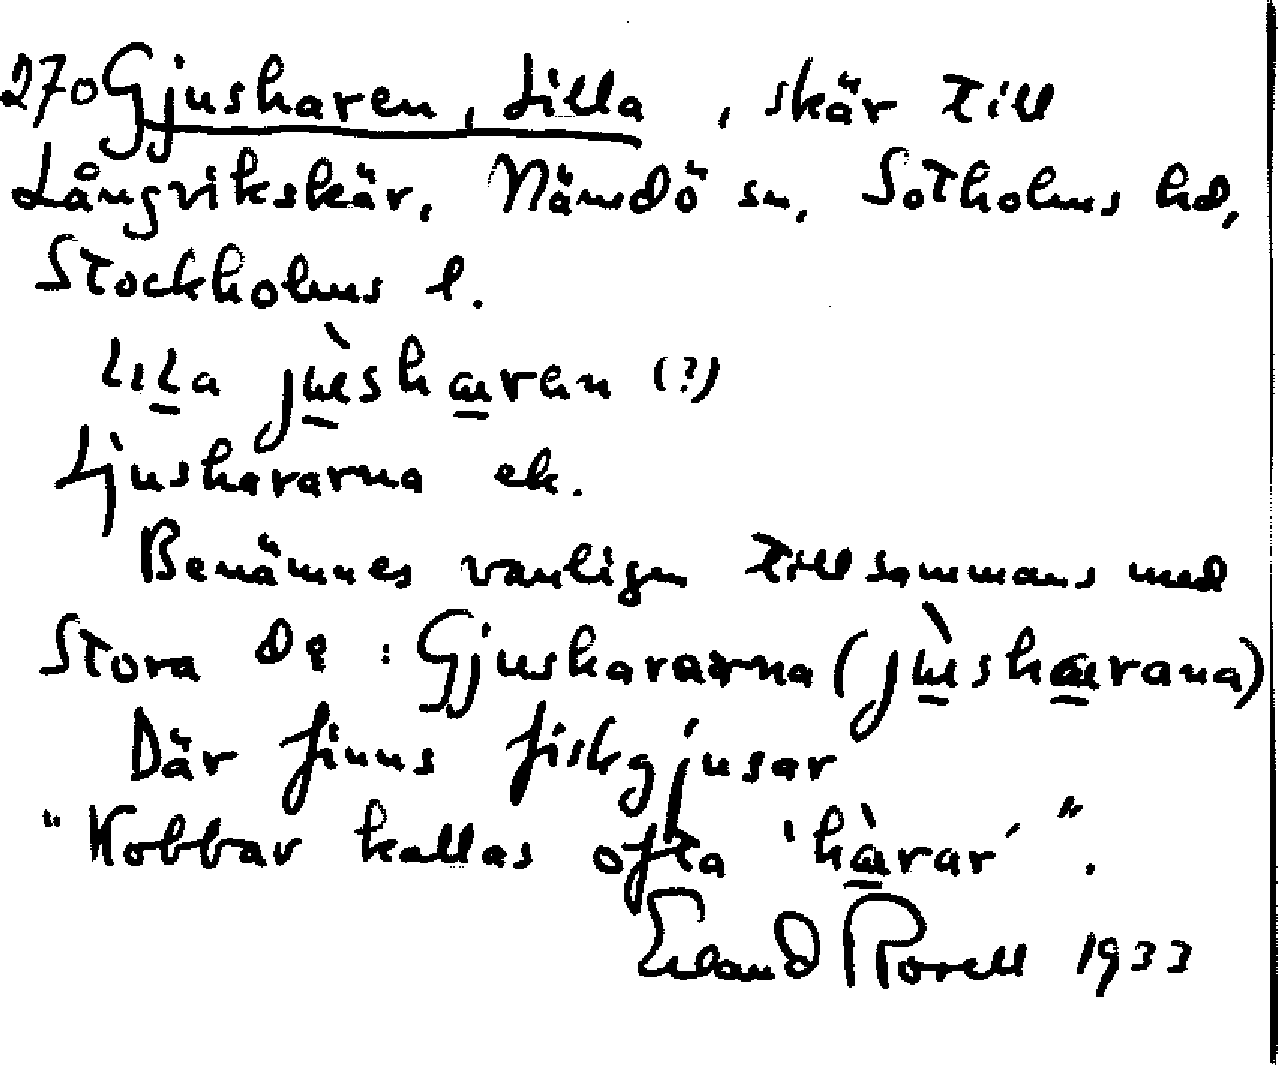 270 Gjusharen, Lilla, skär till
Långvikskär, Nämdö sn, Sotholms hd,
Stockholms l.
lıla jɯ̀shɑran (?)
Ljushararna ek.
Benämnes vanligen tillsammans med
Stora D:o : Gjushararna (jɯ̀shɑrana)
Där finns fiskgjusar
"Kobbar kallas ofta 'hɑ̀rar'".
Erland Rosell 1933